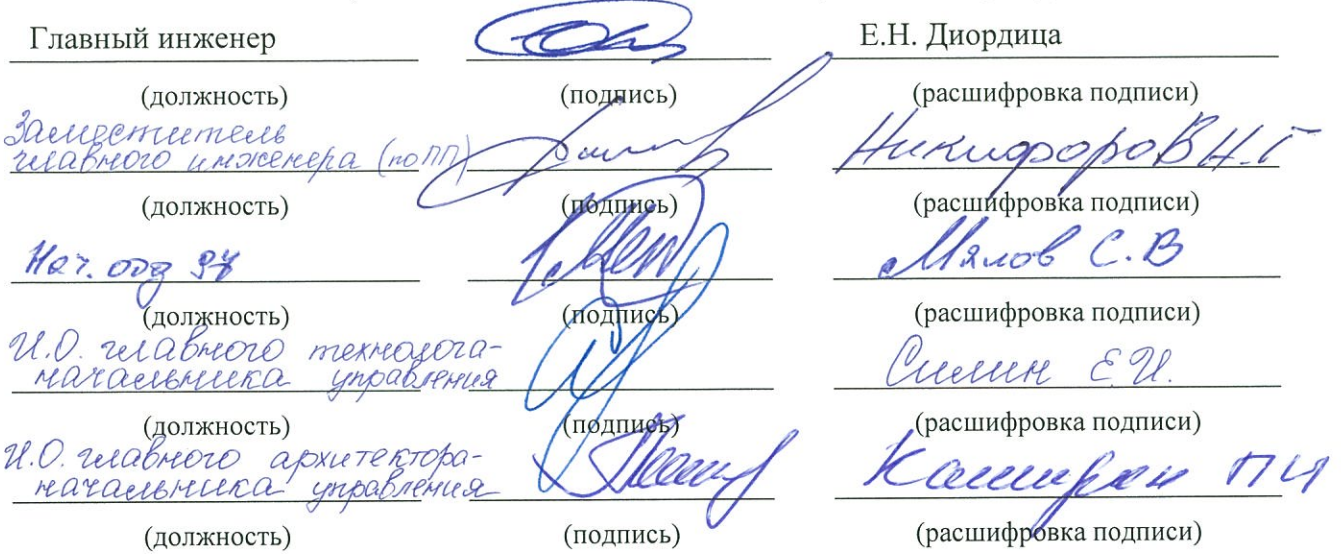 Главный инженер Е.Н. Диордица
(должность) (подпись) (расшифровка подписи)
Заместитель
главного инженера (по ПП) Никифоров Н.Г
(должность) (подпись) (расшифровка подписи)
Нач. 97 Мялов С.В
(должность) (подпись) (расшифровка подписи)
И.О. главного технолога-
начальника управления Силин Е.И.
(должность) (подпись) (расшифровка подписи)
И.О. главного архитектора-
начальника управления
(должность) (подпись) (расшифровка подписи)